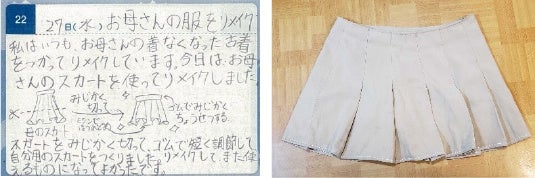 22
27日(水)お母さんの服をリメイク
私はいつも、お母さんの着なくなった古着
をつかってリメイクしています。今日は、お母
さんのスカートを使ってリメイクしました。
みじかく
切って
ゴムでみじかく
ちょうせつする。
母のスカート
スカートをみじかく切って、ゴムで短く調節して
自分用のスカートをつくりました。リメイクして、また使
えるものになってよかったです。